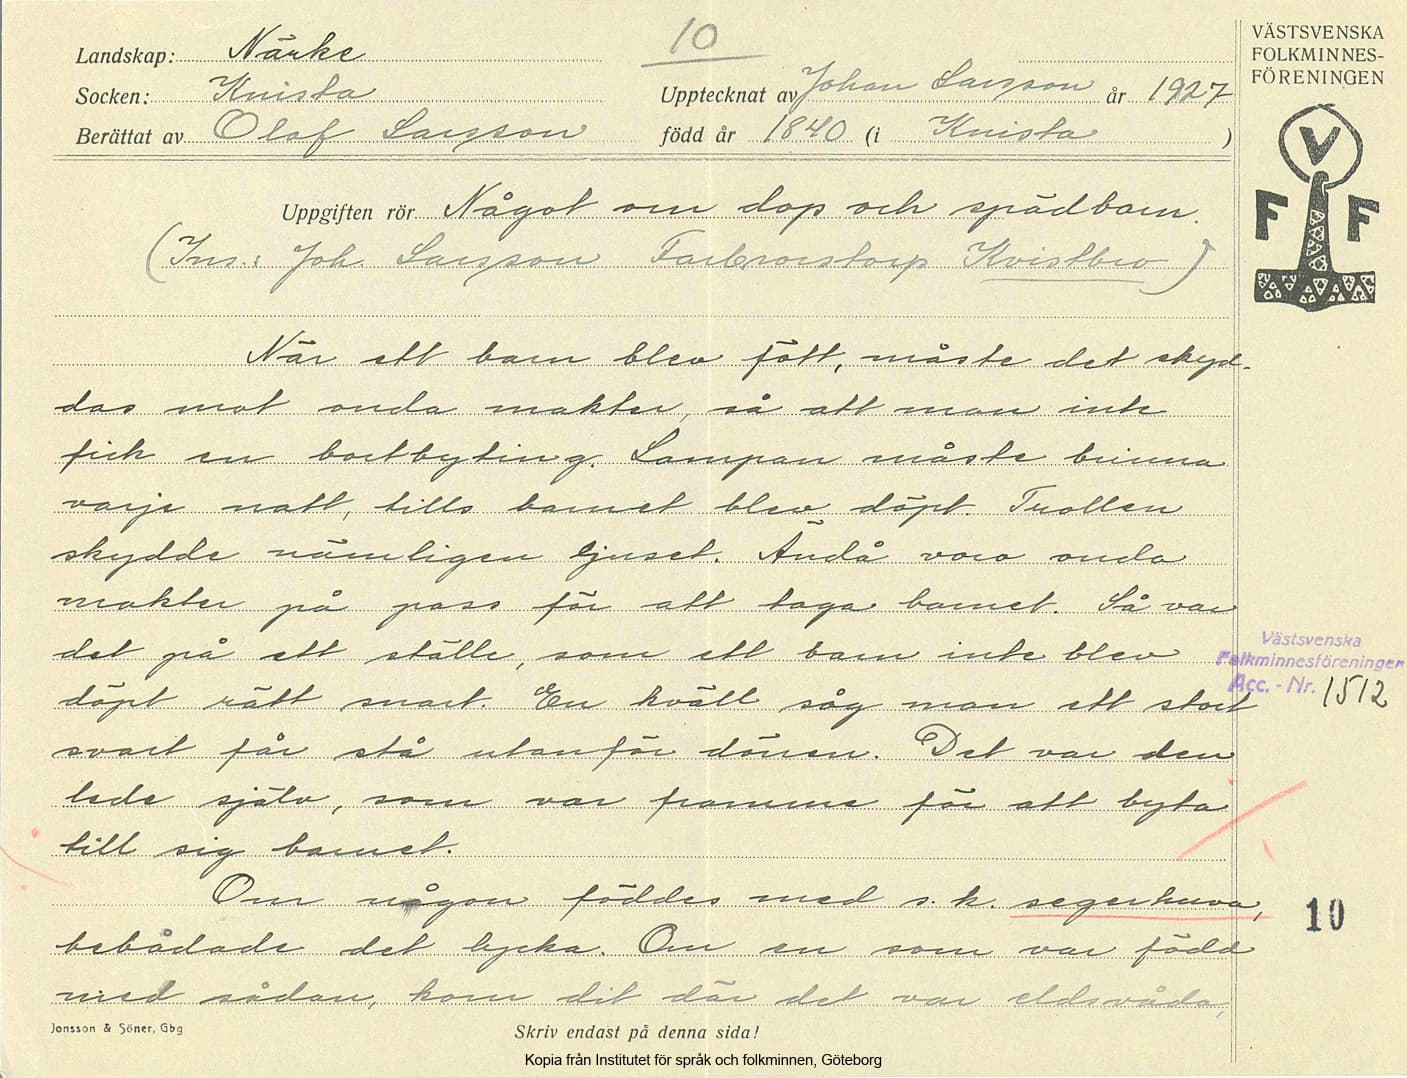 10
Landskap: Närke
Socken: Knista
Berättat av Olof Larsson
Upptecknat av Johan Larsson år 1927
född år 1840 (i Knista )
VÄSTSVENSKA
FOLKMINNES-
FÖRENINGEN
V
F F
Uppgiften rör Något om dop och spädbarn.
(Ins.: Joh. Larsson Farbrorstorp Kvistbro)
När ett barn blev fött, måste det skyd-
das mot onda makter, så att man inte
fick en bortbyting. Lampan måste brinna
varje natt, tills barnet blev döpt. Trollen
skydde nämligen ljuset. Ändå voro onda
makter på pass för att taga barnet. Så var
det på ett ställe, som ett barn inte blev
döpt rätt snart. En kväll såg man ett stort
svart får stå utanför dörren. Det var den
lede själv, som var framme för att byta
till sig barnet.
Om någon föddes med s.k. segerhuva,
bebådade det lycka. Om en som var född
med sådan, kom dit där det var eldsvåda,
Västsvenska
Folkminnesföreningen
Acc.-Nr. 1512
10
Jonsson & Söner, Gbg
Skriv endast på denna sida!
Kopia från Institutet för språk och folkminnen, Göteborg